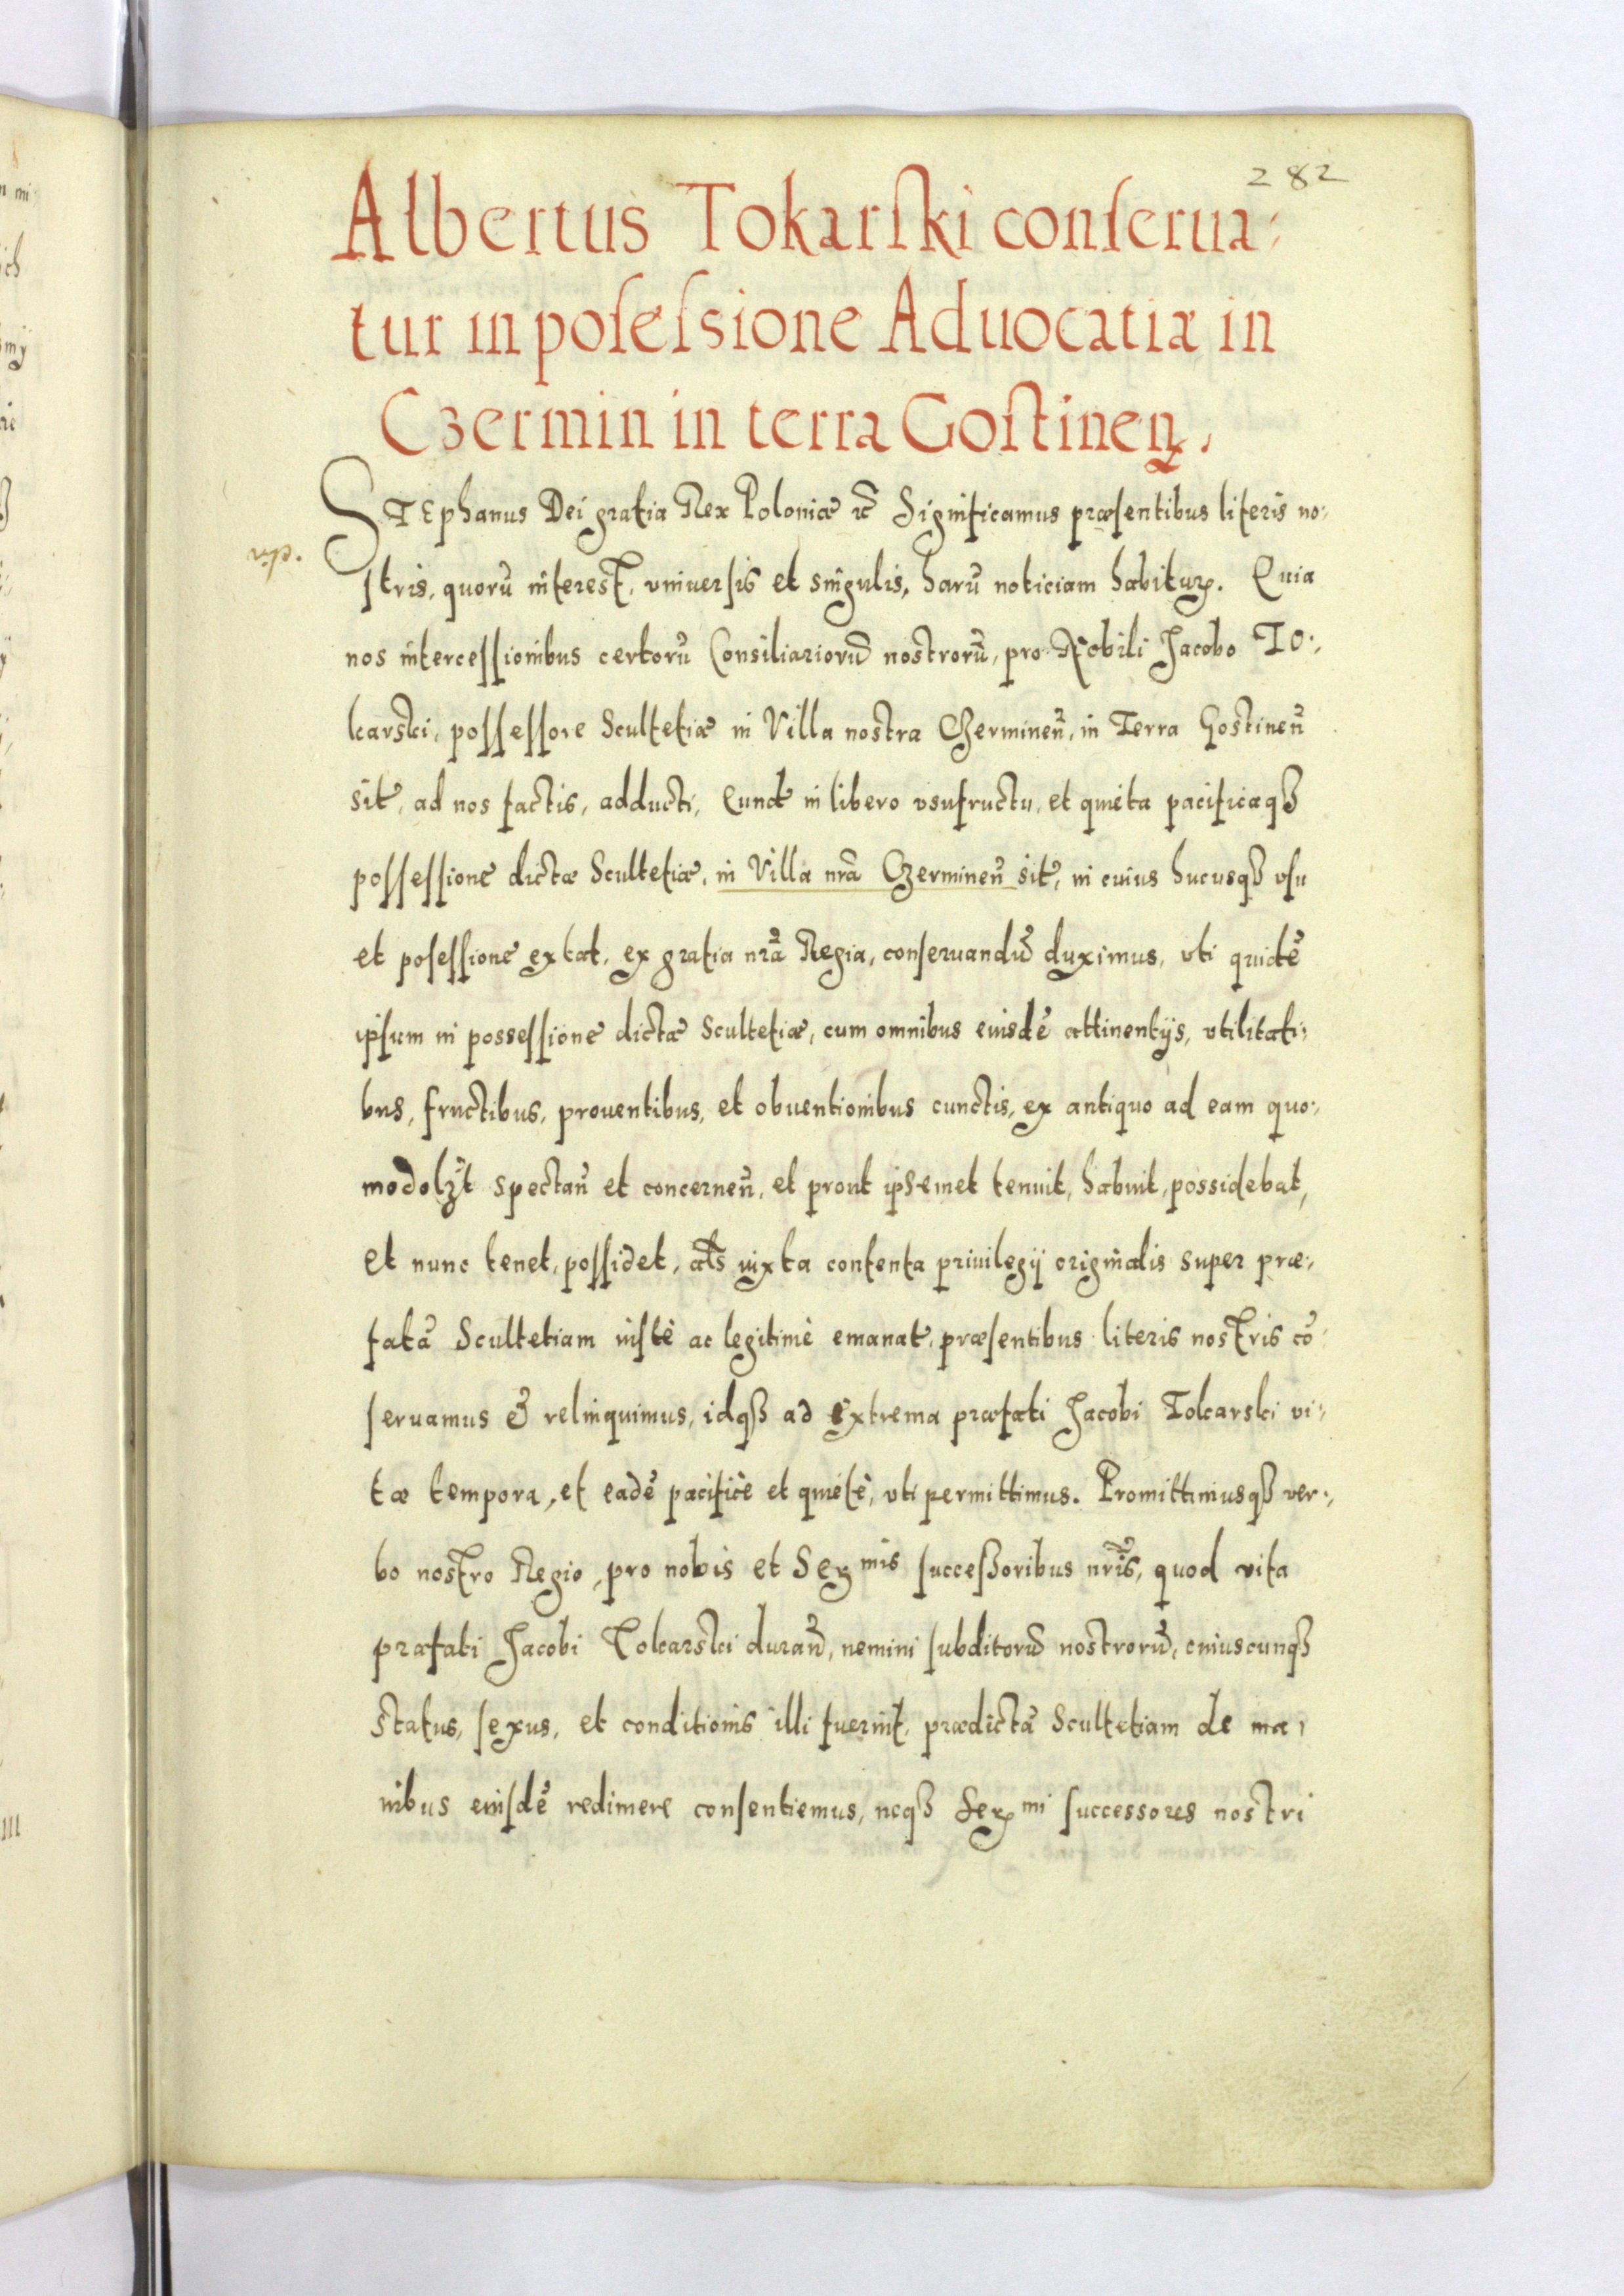 282
Albertus Tokarſki conſerua⸗
tur in poſeſsione Aduocatiæ in
Czermin in terra Goſtinen̄.
STEphanus Dei gratia Rex Poloniæ ꝛc̃ Significamus præſentibus literis no⸗
ſtris, quorū interest, vniuerſis et singulis, harū noticiam habituꝝ. Quia
nos interceſſionibus certorū Consiliariorū nostrorū, pro Nobili Jacobo To⸗
karski, poſſeſſore Scultetiæ in Villa nostra Czerminen̄, in Terra Gostinen̄
sit̃, ad nos factis, adducti, Eund̃ in libero vsufructu, et quieta pacificaqꝫ
poſſeſſione dictæ Scultetiæ, in Villa nr̃a Czerminen̄ sit̃, in cuius hucusqꝫ vſu
et poſeſſione extat, ex gratia nr̃a Regia, conſeruandū duximus, vti quidē
ipſum in posseſſione dictæ Scultetiæ, cum omnibus eiusdē attinentijs, vtilitati⸗
bus, fructibus, prouentibus, et obuentionibus cunctis, ex antiquo ad eam quo⸗
modolꝫt spectan̄ et concernen̄, et prout ipsemet tenuit, habuit, possidebat,
et nunc tenet, poſſidet, al̃s iuxta contenta priuilegij originalis super præ⸗
fatā Scultetiam iuſtè ac legitimè emanat̃, præſentibus literis nostris cō⸗
ſeruamus & relinquimus, idqꝫ ad extrema præfati Jacobi Tokarski vi⸗
tæ tempora, et eadē pacificè et quietè, vti permittimus. Promittimusqꝫ ver⸗
bo nostro Regio, pro nobis et Serᵐⁱˢ ſucceſsoribus nr̃is, quod vita
præfati Jacobi Tokarski duran̄, nemini ſubditorū nostrorū, cuiuscunqꝫ
status, ſexus, et conditionis illi fuerint, prædictā Scultetiam de ma⸗
nibus eiuſdē redimere conſentiemus, neqꝫ Serᵐⁱ ſuccessores nostri